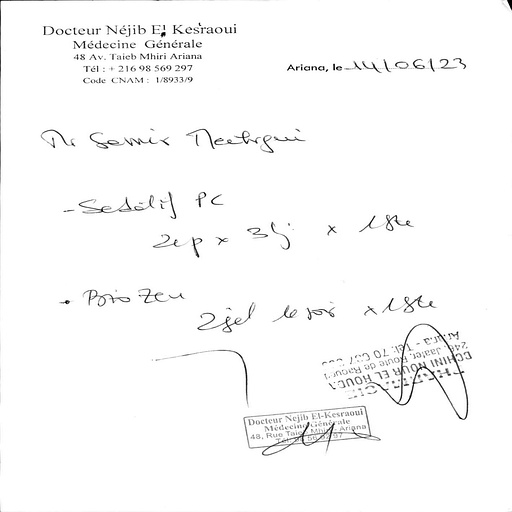 Docteur Néjib El Kesraoui
Médecine Générale
48 Av. Taieb Mhiri Ariana
Tél : + 216 98 569 297
Code CNAM : 1/8933/9
Ariana, le 14/06/23
Mr Semir
- Sédatif PC
2cp x 3/j x 1 bte
• Bio Zen
2 gel le soir x 1 bte
ECHINI NOUR EL HOUDA
Docteur Néjib El-Kesraoui
Médecine Générale
48, Rue Taieb Mhiri Ariana